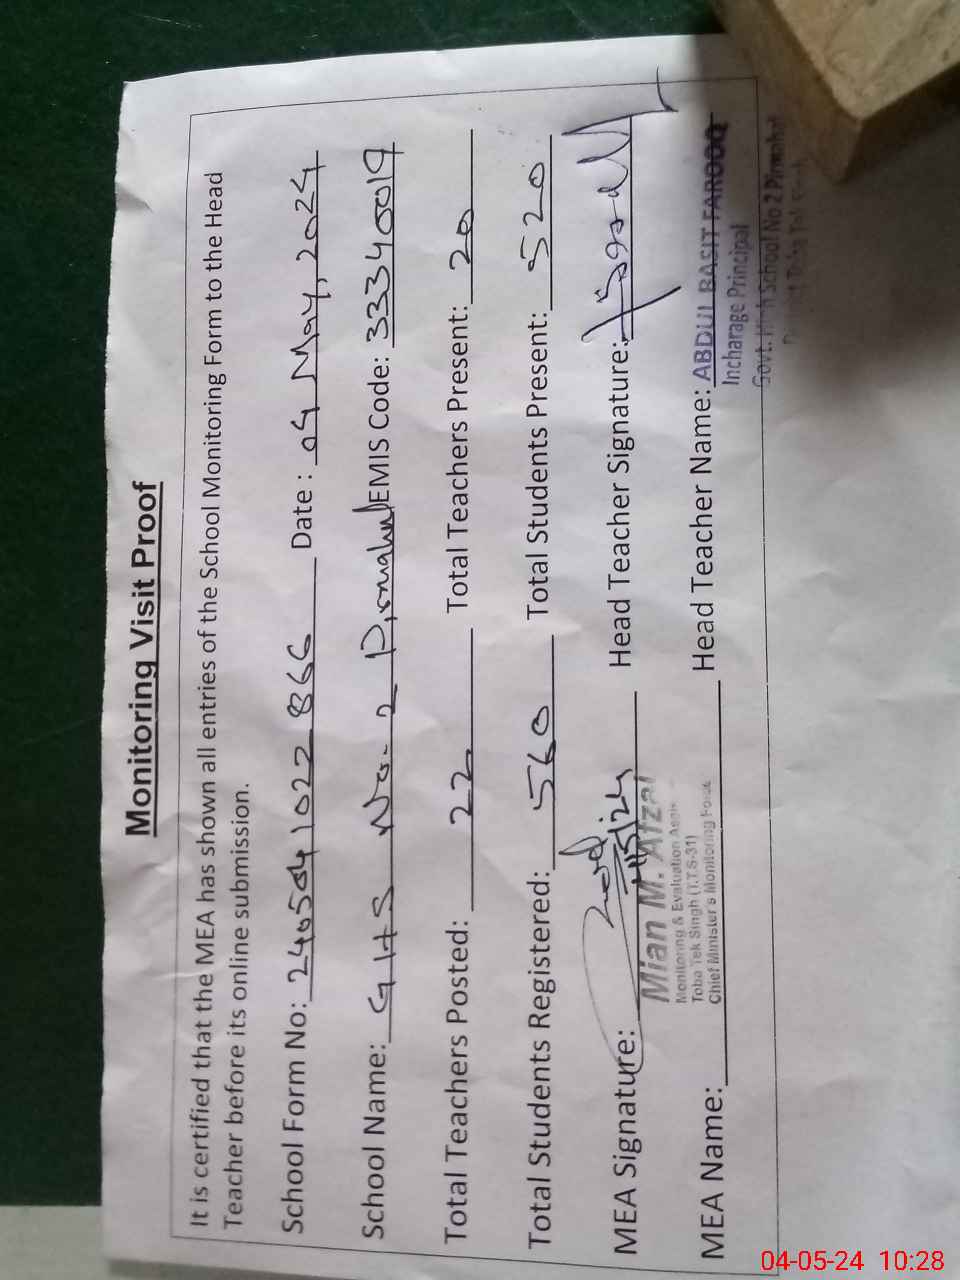 Monitoring Visit Proof
It is certified that the MEA has shown all entries of the School Monitoring Form to the Head
Teacher before its online submission.
School Form No: 240504 1022 866 Date : 04 May, 2024
School Name: GHS No- 2 Pirmahal EMIS Code: 33340019
Total Teachers Posted: 22 Total Teachers Present: 20
Total Students Registered: 560 Total Students Present: 520
MEA Signature: Head Teacher Signature:
Mian M. Afzal
Monitoring & Evaluation
Toba Tek Singh (T.T.S-31)
Chief Minister's Monitoring Force
MEA Name: Head Teacher Name: ABDUL BASIT FAROOQ
Incharage Principal
Govt. High School No 2 Pirmahal
Toba Tek
04-05-24 10:28